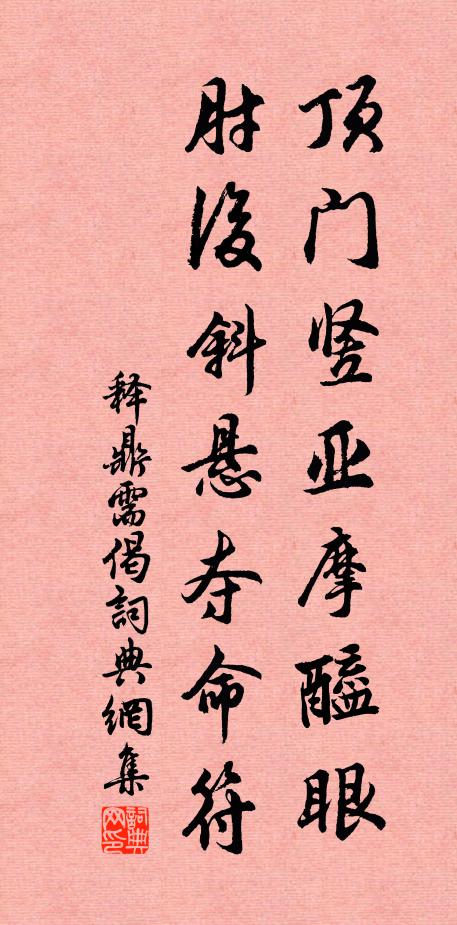 顶门竖亚摩醯眼
肘后斜悬夺命符
释鼎需偈詞典網集
詞典网印